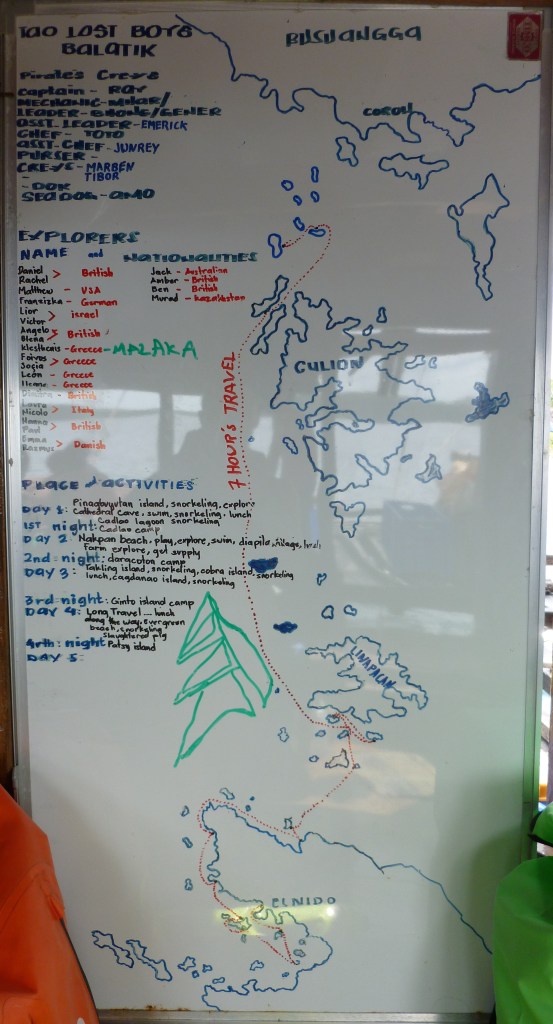 TAO LOST BOYS
BALATIK
BUSUANGGA
Pirate's Crews
Captain - RAY
MECHANIC-
LEADER-
ASST. LEADER-EMERICK
CHEF- TOTO
ASST-CHEF-JUNREY
PURSER -
CREWS- MARBEN
- TIBOR
- DOK
SEADOG-AMO
CORON
EXPLORERS
NAME and NATIONALITIES
Daniel
Rachel > British
Matthew - USA
Franziska - German
Lior
Victor > israel
Angelo
Olena > British
Klesthenis - Greece - MALAKA
Foivos
Socia > Greece
Leon - Greece
Ileana - Greece
- British
Nicolo > Italy
Hanna
Paul > British
Emma
Rasmus > Danish
Jack - Australian
Amber - British
Ben - British
Murad - Kazakhstan
CULION
7 HOUR'S TRAVEL
PLACE and ACTIVITIES
DAY 1: Pinagbuyutan island, snorkeling, explore
Cathedral cave, swim, snorkeling, lunch
Cadlao lagoon snorkeling
1ST night: Cadlao camp
DAY 2: Nakpan beach, play, explore, swim, diapila, village, lunch
Farm explore, get supply
2nd night: daracoton camp
DAY 3: Takling island, snorkeling, cobra island, snorkeling
lunch, cagdanao island, snorkeling
3rd night: Ginto island camp
DAY 4: Long Travel... lunch
along the way. evergreen
beach, snorkeling
Slaughtered pig
4rth: night Patsy island
DAY 5:
LINAPACAN
ELNIDO